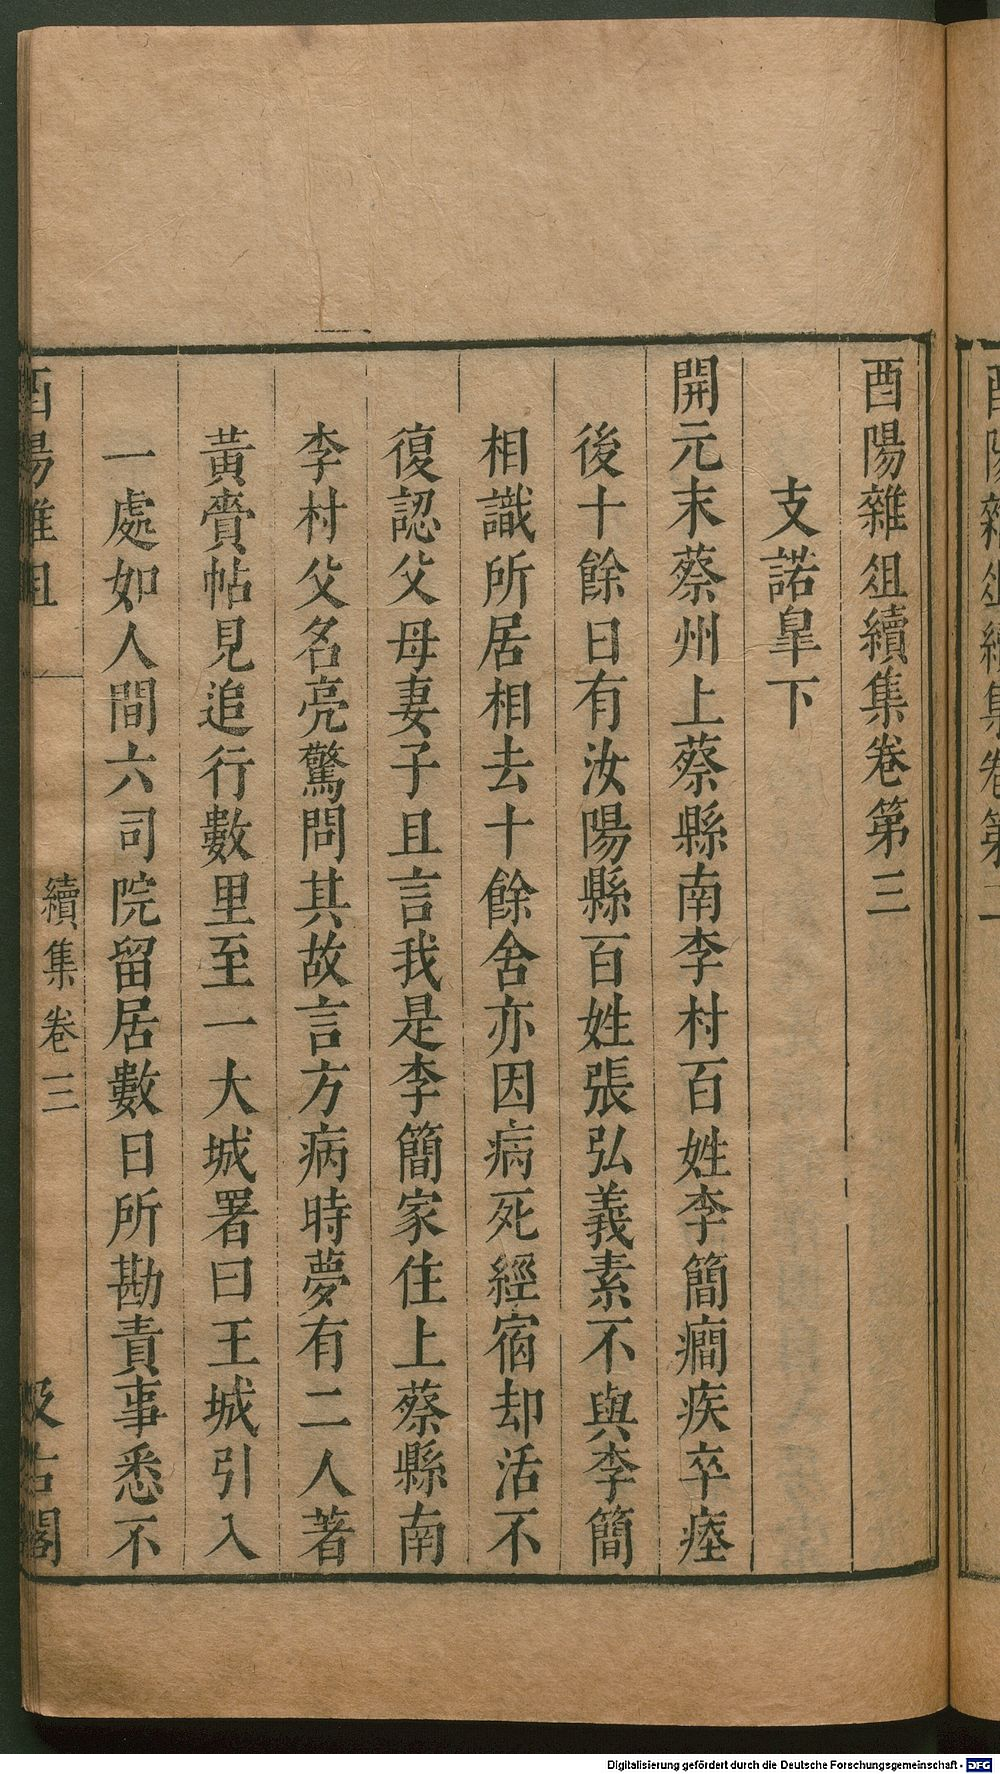 酉陽雜俎續集卷第三
支諾皐下
開元末蔡州上蔡縣南李村百姓李簡癇疾卒瘞
後十餘日有汝陽縣百姓張弘義素不與李簡
相識所居相去十餘舍亦因病死經宿却活不
復認父母妻子且言我是李簡家住上蔡縣南
李村父名亮驚問其故言方病時夢有二人著
黃賫帖見追行數里至一大城署曰王城引入
一處如人間六司院留居數日所勘責事悉不
酉陽雜俎
續集卷三
汲古閣
Digitalisierung gefördert durch die Deutsche Forschungsgemeinschaft - DFG